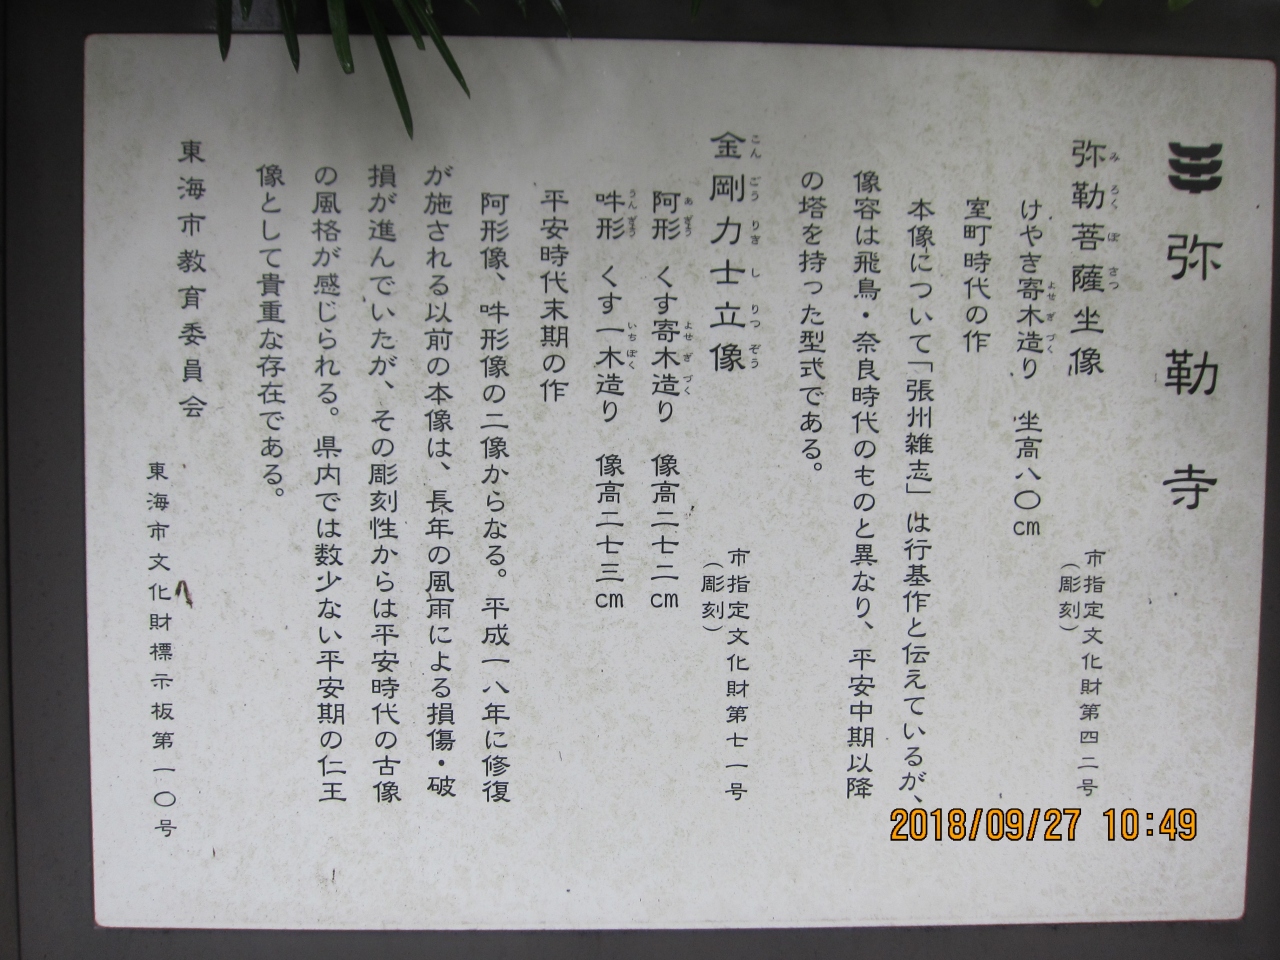 弥勒寺
弥勒菩薩坐像
みろくぼさつ
市指定文化財第四二号
（彫刻）
けやき寄木造り　坐高八〇cm
よせぎづく
室町時代の作
本像について「張州雑志」は行基作と伝えているが、
像容は飛鳥・奈良時代のものと異なり、平安中期以降
の塔を持った型式である。
金剛力士立像
こんごうりきしりつぞう
市指定文化財第七一号
（彫刻）
阿形　くす寄木造り　像高二七二cm
あぎょう　よせぎづく
吽形　くす一木造り　像高二七三cm
うんぎょう　いちぼく
平安時代末期の作
阿形像、吽形像の二像からなる。平成一八年に修復
が施される以前の本像は、長年の風雨による損傷・破
損が進んでいたが、その彫刻性からは平安時代の古像
の風格が感じられる。県内では数少ない平安期の仁王
像として貴重な存在である。
東海市教育委員会
東海市文化財標示板第一〇号
2018/09/27 10:49